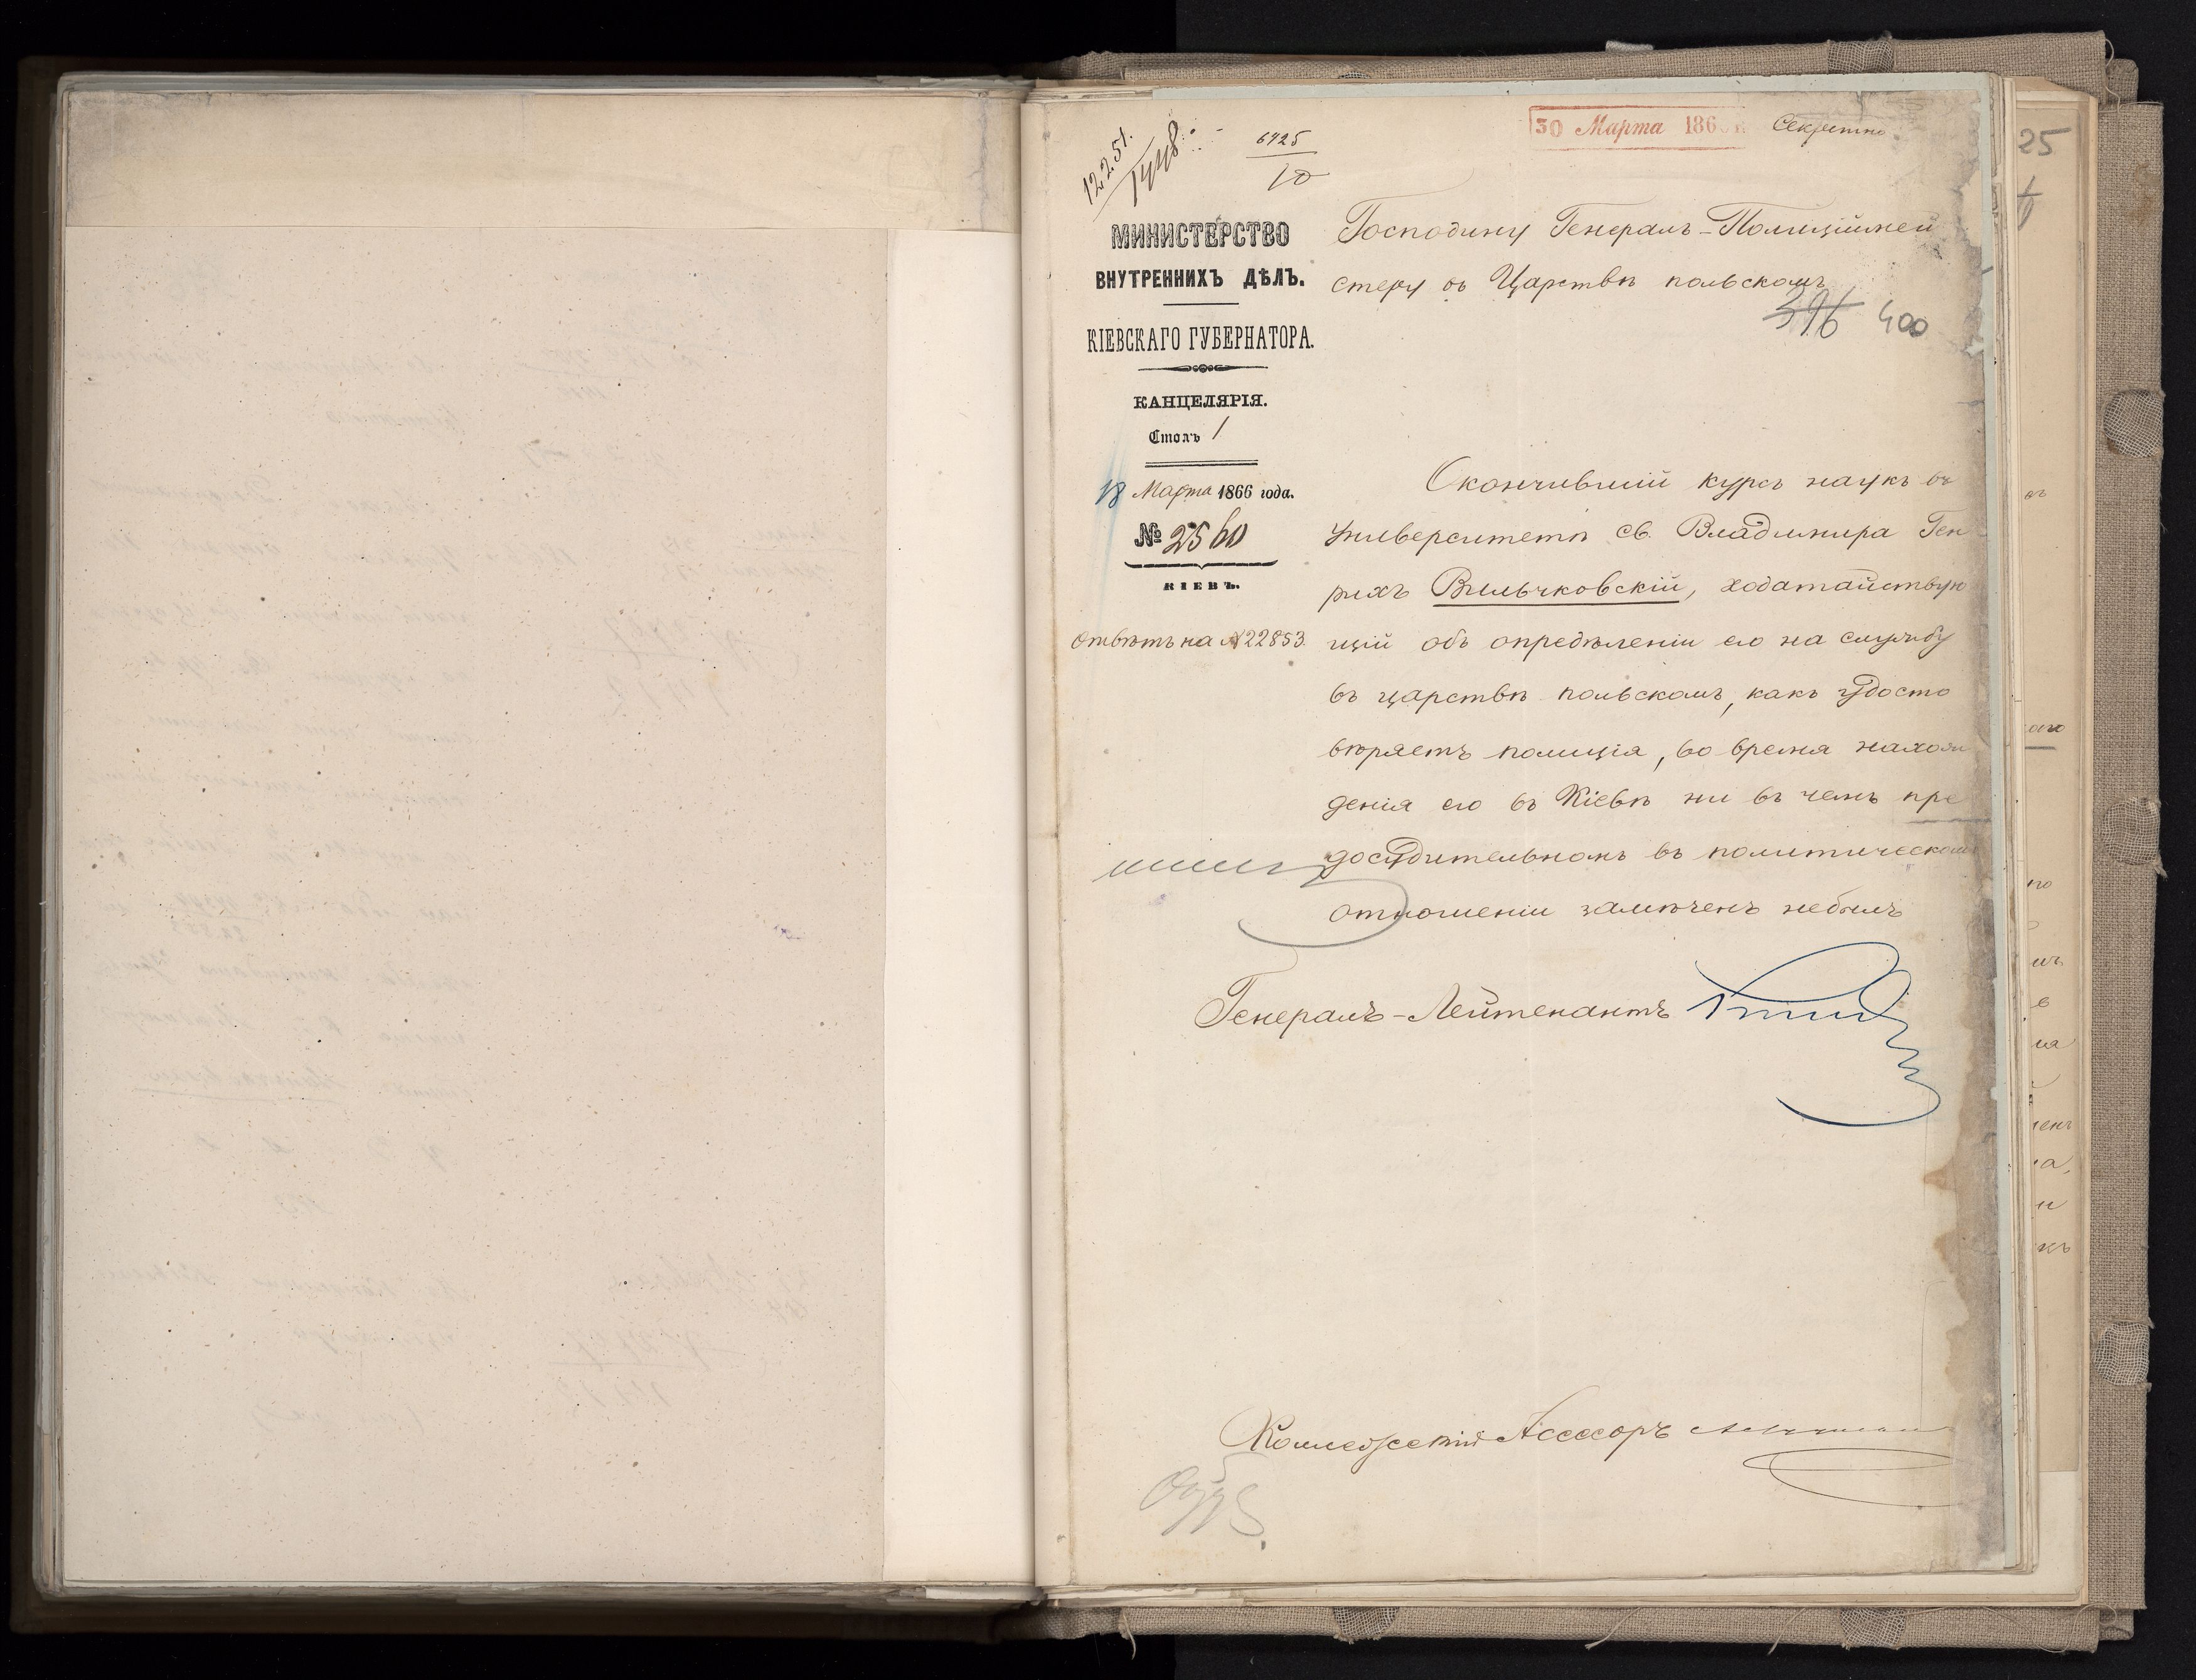 12251.
1448
6425
10
30 Марта 186
Секретно
МИНИСТЕРСТВО
ВНУТРЕННИХЪ ДѢЛЪ.
КІЕВСКАГО ГУБЕРНАТОРА.
КАНЦЕЛЯРІЯ.
Столъ 1
18 Марта 1866 года.
№ 2560
КІЕВЪ.
Отвѣтъ на №22853.
Господину Генералъ-Полиціймей
стеру въ Царствѣ польскомъ
396 400
Окончившій курсъ наукъ въ
университетѣ св. Владиміра Ген
рихъ Вильчковскій, ходатайствую
щій объ опредѣленіи его на службу
въ царствѣ польскомъ, какъ удосто
вѣряетъ полиція, во время нахож
денія его въ Кіевѣ ни въ чемъ пре
досудительномъ въ политическом
отношеніи замѣченъ небылъ
Генералъ-Лейтенантъ
Коллежскій Асессоръ
25